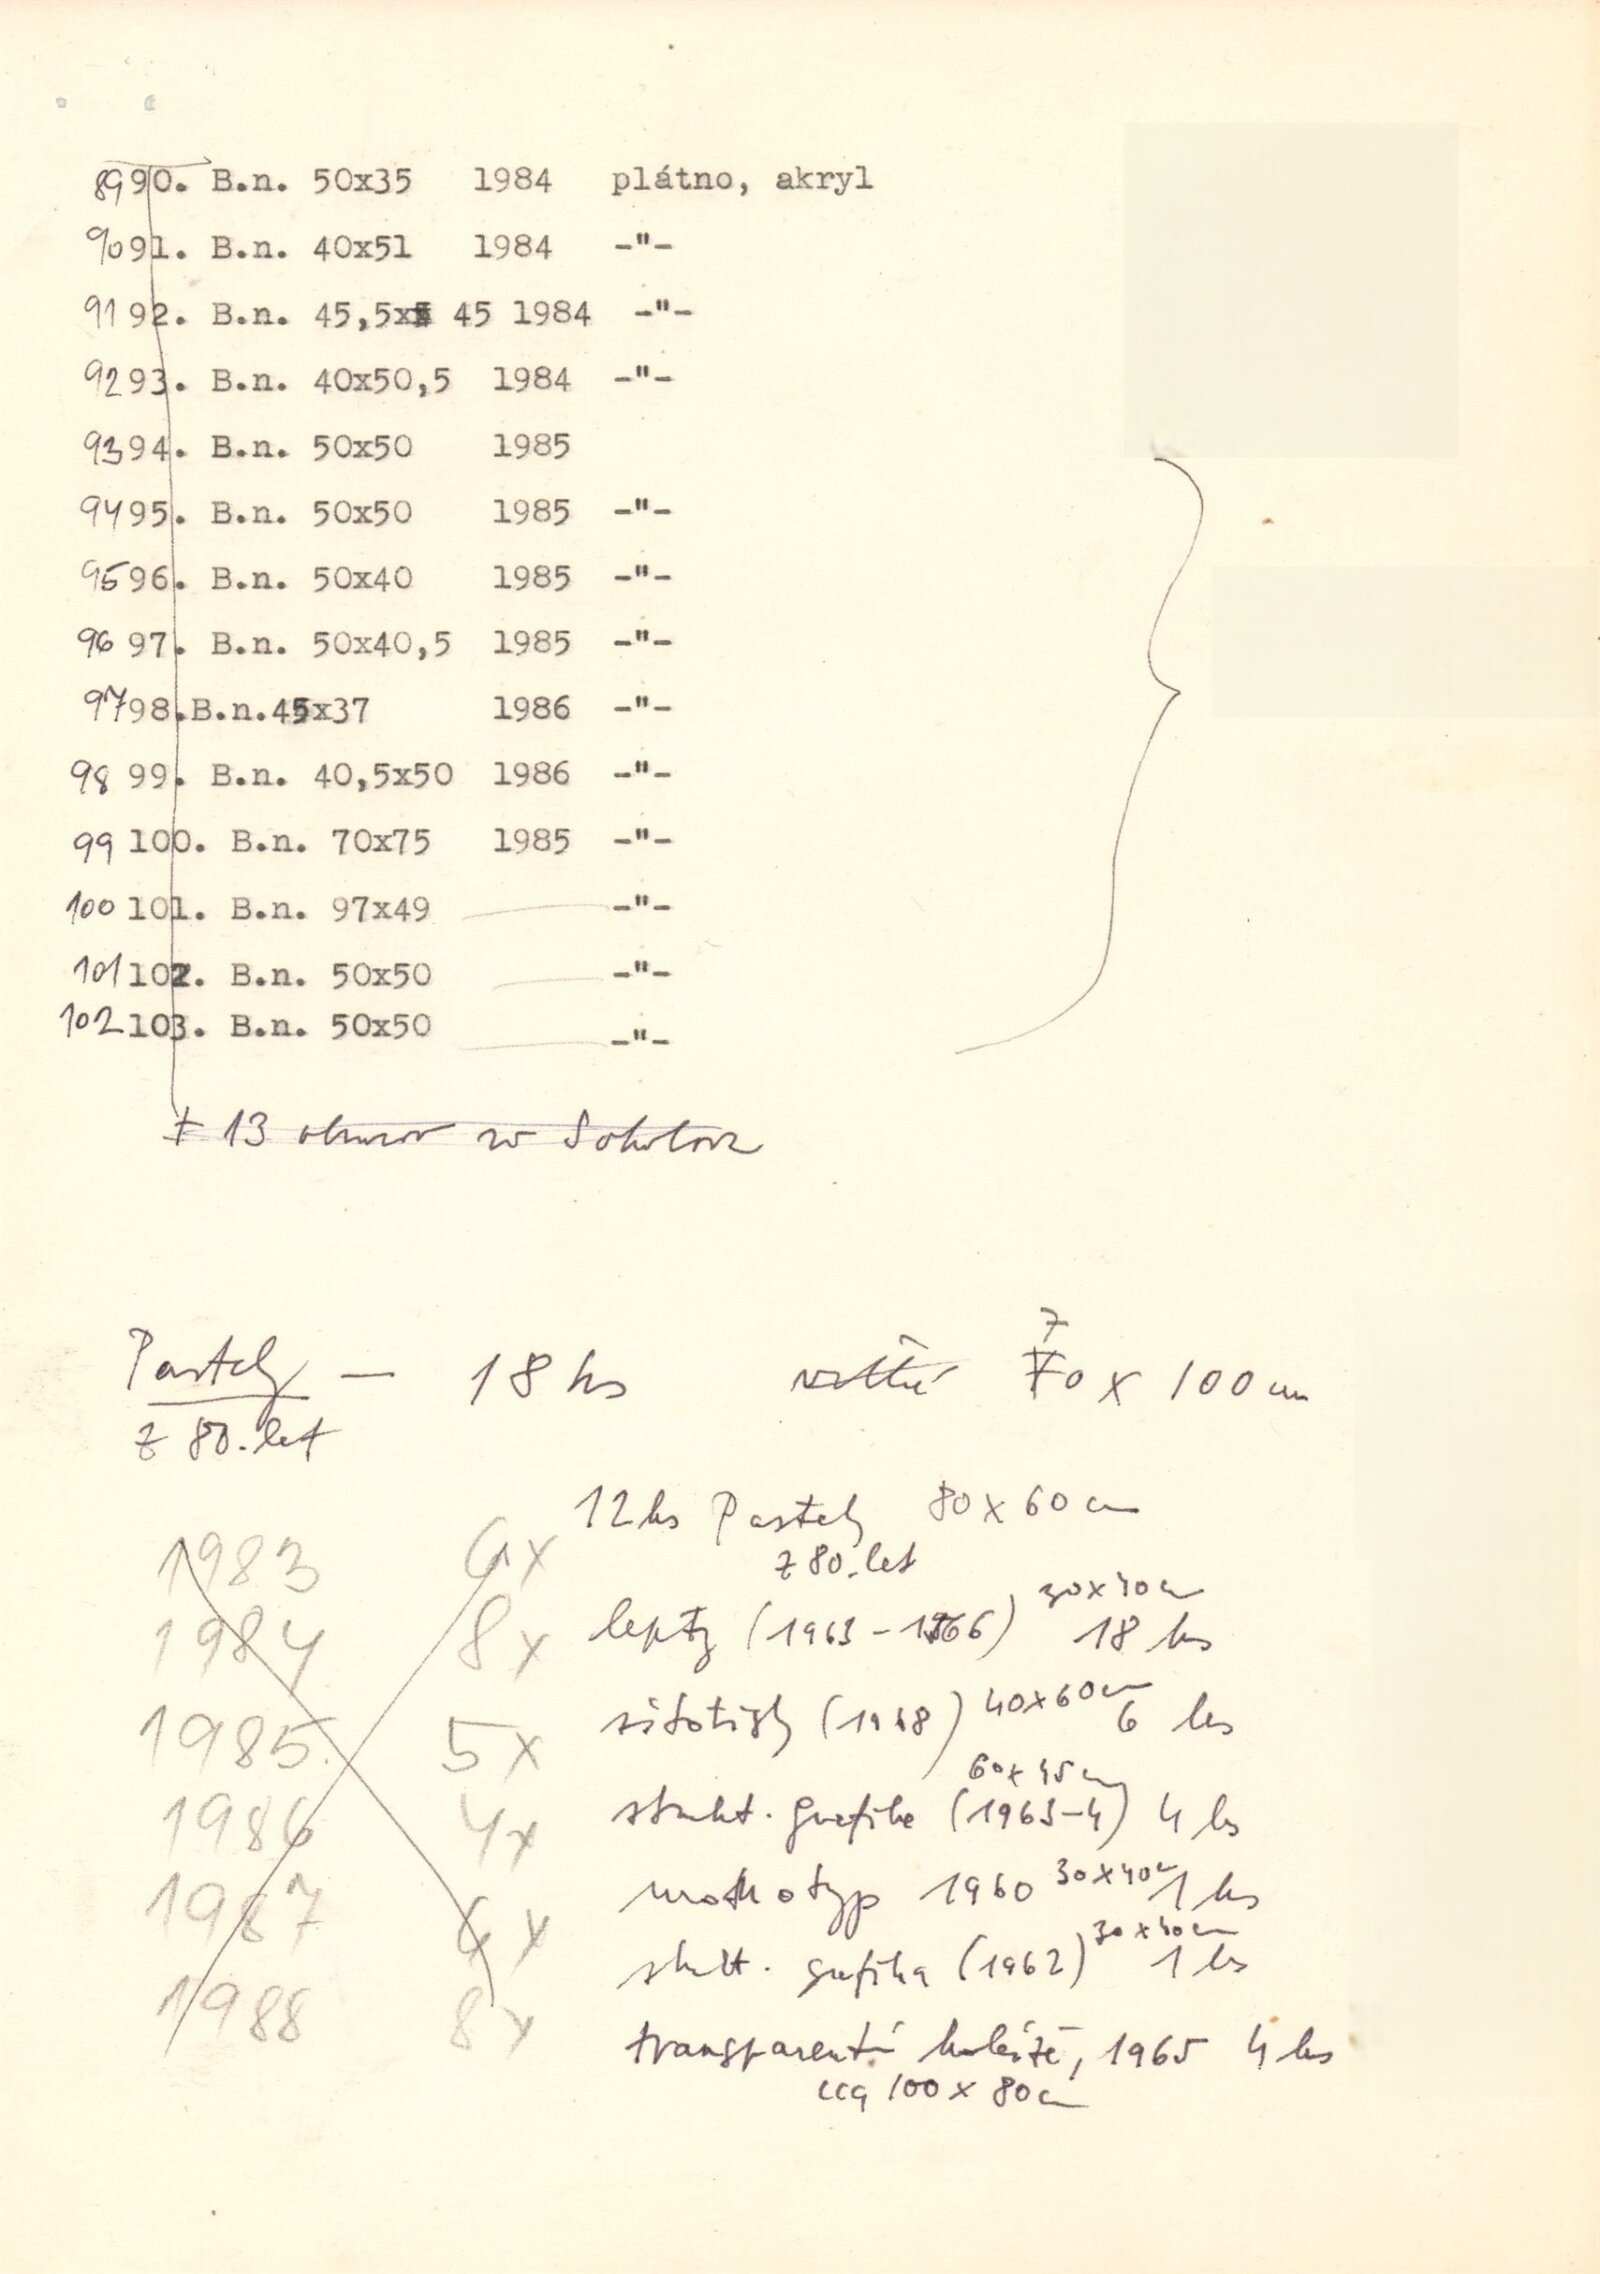 89 90. B.n. 50x35 1984 plátno, akryl
90 91. B.n. 40x51 1984 -"-
91 92. B.n. 45,5x 45 1984 -"-
92 93. B.n. 40x50,5 1984 -"-
93 94. B.n. 50x50 1985
94 95. B.n. 50x50 1985 -"-
95 96. B.n. 50x40 1985 -"-
96 97. B.n. 50x40,5 1985 -"-
97 98.B.n.45x37 1986 -"-
98 99. B.n. 40,5x50 1986 -"-
99 100. B.n. 70x75 1985 -"-
100 101. B.n. 97x49 -"-
101 102. B.n. 50x50 -"-
102 103. B.n. 50x50 -"-
+ 13 obrazov
Pastely — 18 ks 70 x 100 cm
z 80. let
12 ks Pastely 80 x 60 cm
z 80. let
1983 6x
1984 8x
1985 5x
1986 4x
1987 6x
1988 8x
lepty (1963 - 1966) 30x40 cm 18 ks
40x60 cm 6 ks
strukt. grafika (1963-4) 60x45 cm 4 ks
monotyp 1960 30x40 cm 1 ks
strukt. grafika (1962) 30x40 cm 1 ks
transparentní koláže, 1965 4 ks
cca 100 x 80 cm